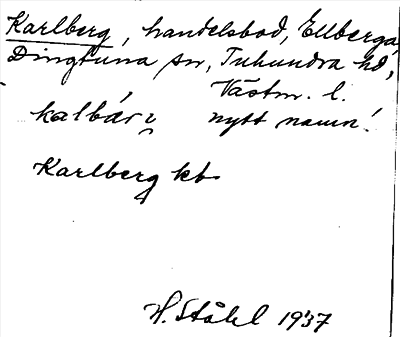 Karlberg, handelsbod, Ellberga,
Dingtuna sn, Tuhundra hd,
Västm. l.
kalbárɩ̯ nytt namn!
Karlberg kb
H. Ståhl 1937